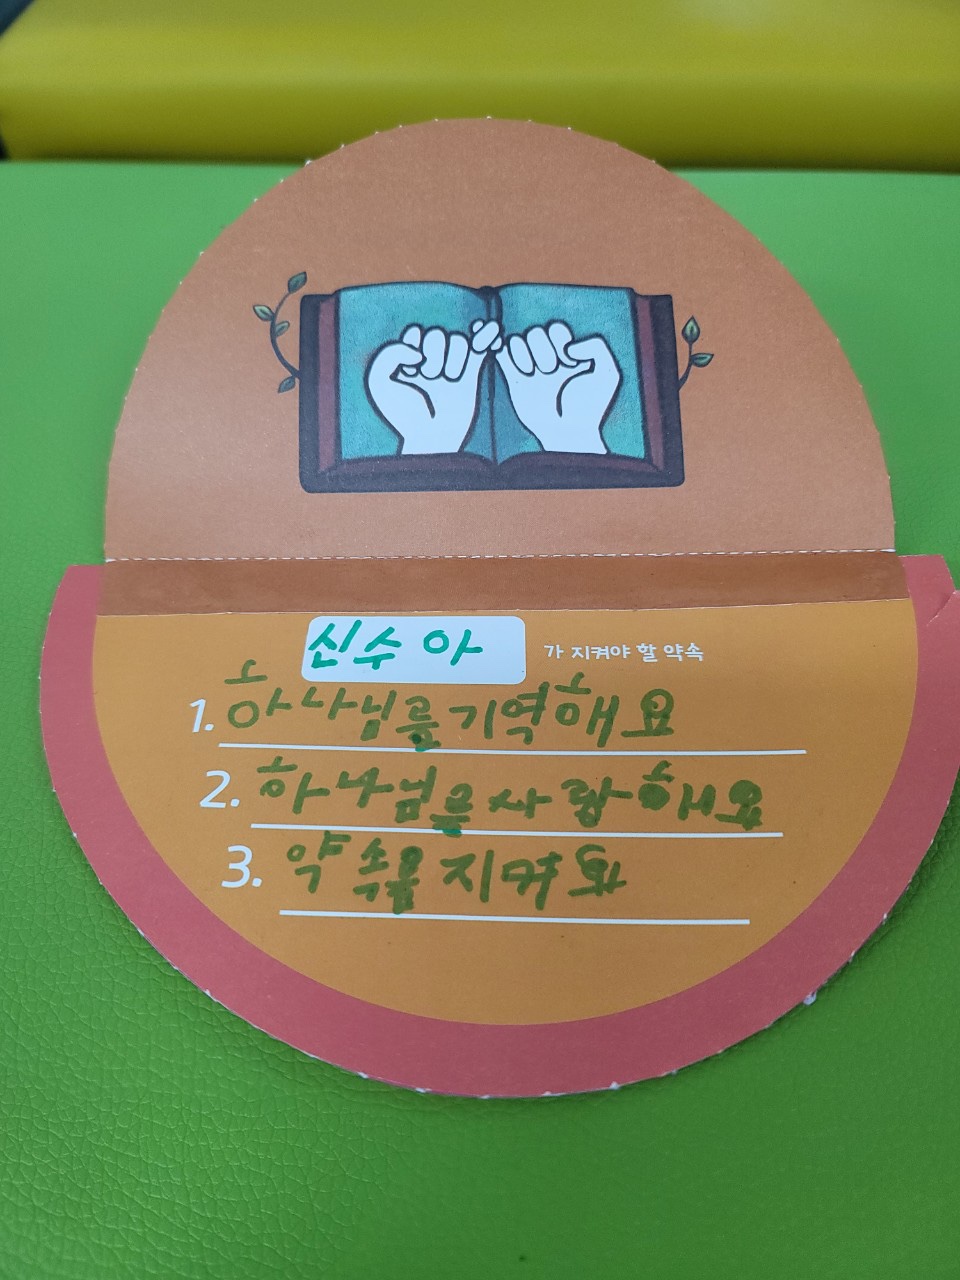 신수아 가 지켜야 할 약속
1. 하나님를기억해요
2. 하나님을사랑해요
3. 약속을지켜요